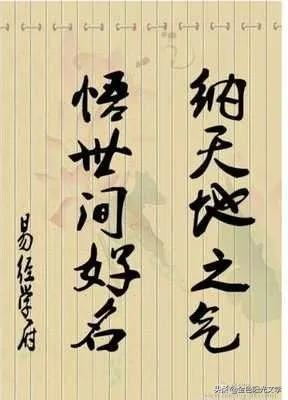 纳天地之气
悟世间好名
易经学府
头条@金色阳光文学